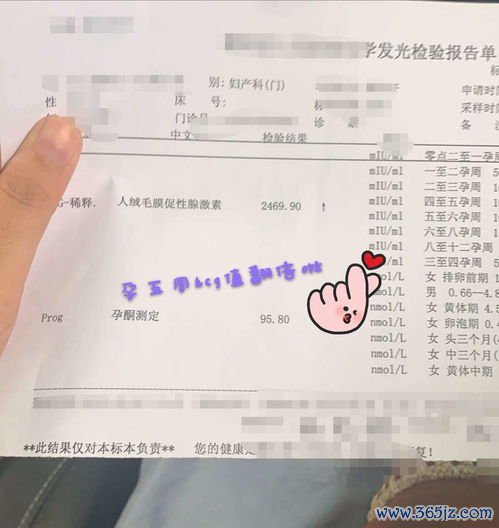 学发光检验报告单
别: 妇产科(门)
申请时
性 床 号: 采样时
门诊号 诊 备
中文 检验结果
mIU/ml 零点二至一孕周
mIU/ml 一至二孕周 5
mIU/ml 二至三孕周
G-稀释. 人绒毛膜促性腺激素 2469.90 ↑ mIU/ml 四至五孕周
mIU/ml 五至六孕周
mIU/ml 六至八孕周
mIU/ml 八至十二孕周
mIU/ml 三至四孕周 5
孕五周hcg值翻倍啦
mol/L 女 排卵前期 1
nmol/L 男 0.66-4.
Prog 孕酮测定 95.80 nmol/L 女 黄体期 4.5
nmol/L 女 卵泡期 0.
nmol/L 女 头三个月(
nmol/L 女 中三个月(
nmol/L 女 黄体中期
**此结果仅对本标本负责** 您的健康 复!
www.365jz.com